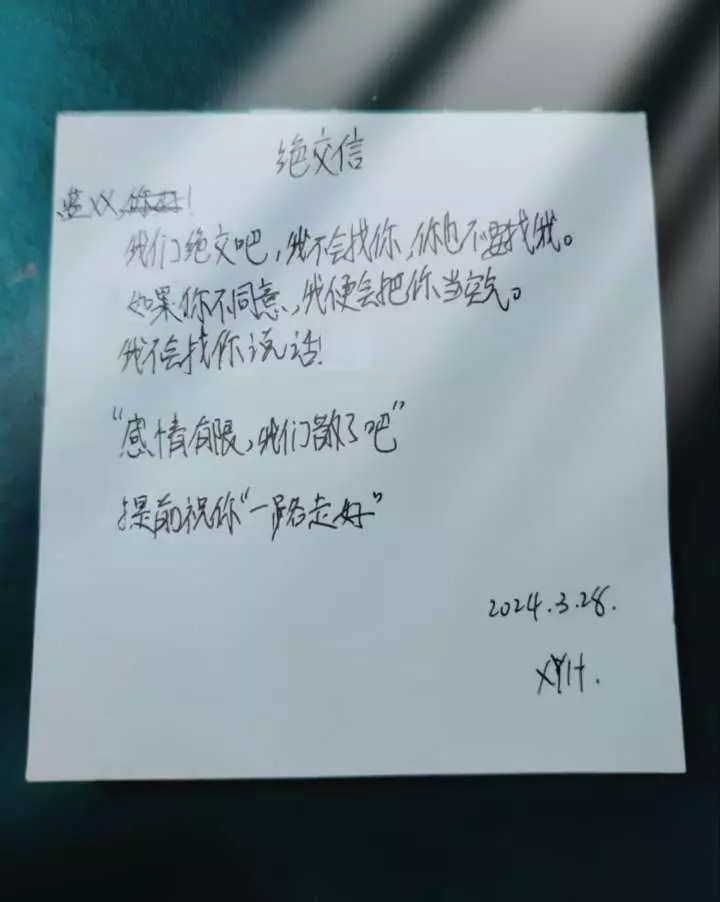 绝交信
XX,你好!
我们绝交吧,我不会找你,你也不要找我。
如果你不同意,我便会把你当空气。
我不会找你说话!
“感情有限,我们散了吧”
提前祝你“一路走好”
2024.3.28.
XYH.